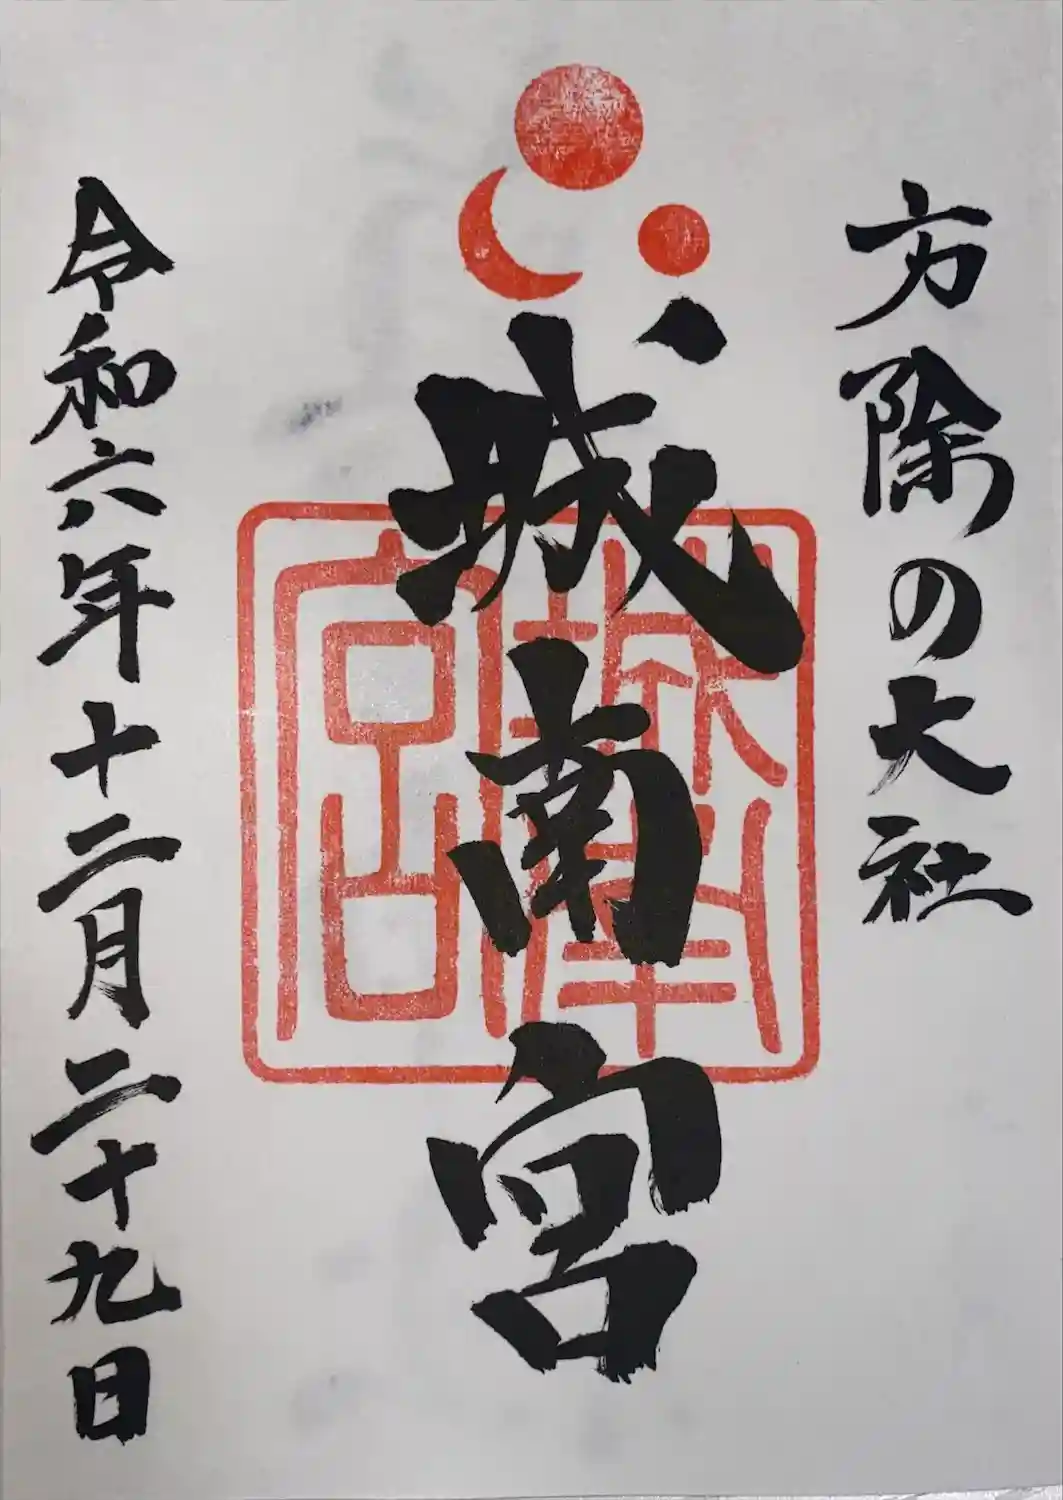 方除の大社
城南宮
城南宮
令和六年十二月二十九日